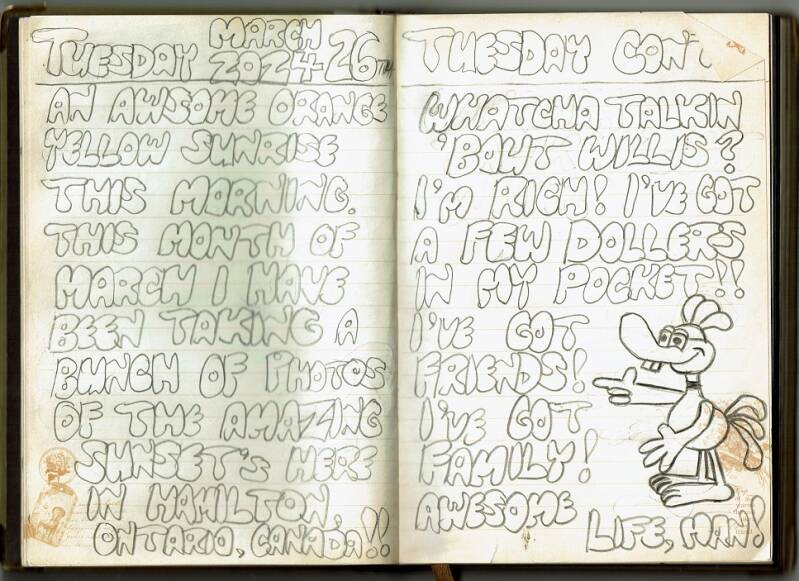 TUESDAY MARCH 2024-26TH
AN AWSOME ORANGE
YELLOW SUNRISE
THIS MORNING.
THIS MONTH OF
MARCH I HAVE
BEEN TAKING A
BUNCH OF PHOTOS
OF THE AMAZING
SUNSET'S HERE
IN HAMILTON,
ONTARIO, CANADA!!
TUESDAY CON'T
WHATCHA TALKIN
'BOUT WILLIS?
I'M RICH! I'VE GOT
A FEW DOLLERS
IN MY POCKET!!
I'VE GOT
FRIENDS!
I'VE GOT
FAMILY!
AWESOME
LIFE, MAN!